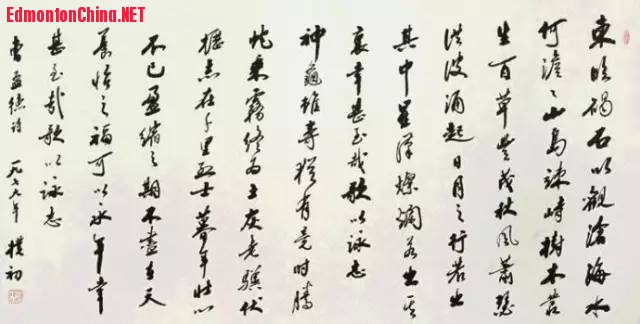 EdmontonChina.NET
東臨碣石以觀滄海水
何澹々山島竦峙樹木叢
生百草豐茂秋風蕭瑟
洪波涌起日月之行若出
其中星漢燦爛若出其
裏幸甚至哉歌以詠志
神龜雖壽猶有竟時騰
蛇乘霧終為土灰老驥伏
櫪志在千里烈士暮年壯心
不已盈縮之期不盡在天
養怡之福可以永年幸
甚至哉歌以詠志
曹孟德詩 樸初